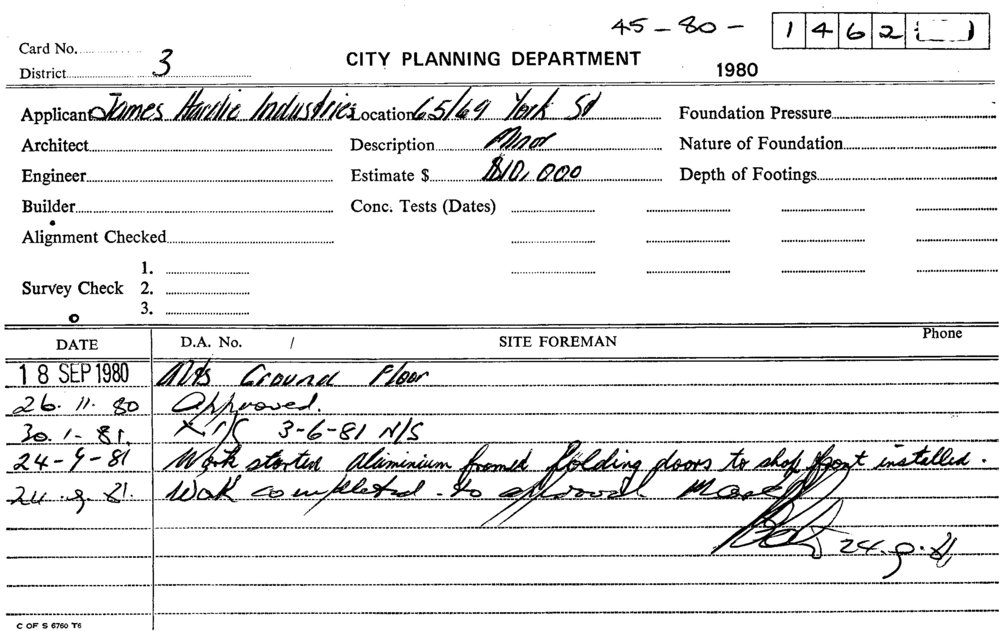 45-80- 1462 1
Card No.
District 3
CITY PLANNING DEPARTMENT
1980
Applicant James Hardie Industries Location 65/69 York St Foundation Pressure
Architect Description Minor Nature of Foundation
Engineer Estimate $ $10,000 Depth of Footings
Builder Conc. Tests (Dates)
Alignment Checked
1.
Survey Check 2.
3.
DATE D.A. No. / SITE FOREMAN Phone
18 SEP 1980 Alts Ground Floor
26.11.80 Approved.
30.1-81. N/S 3-6-81 N/S
24-9-81 Work started Aluminium framed folding doors to shop front installed.
24.9.81. Work completed to approval
24.9.81
C OF S 6760 T6